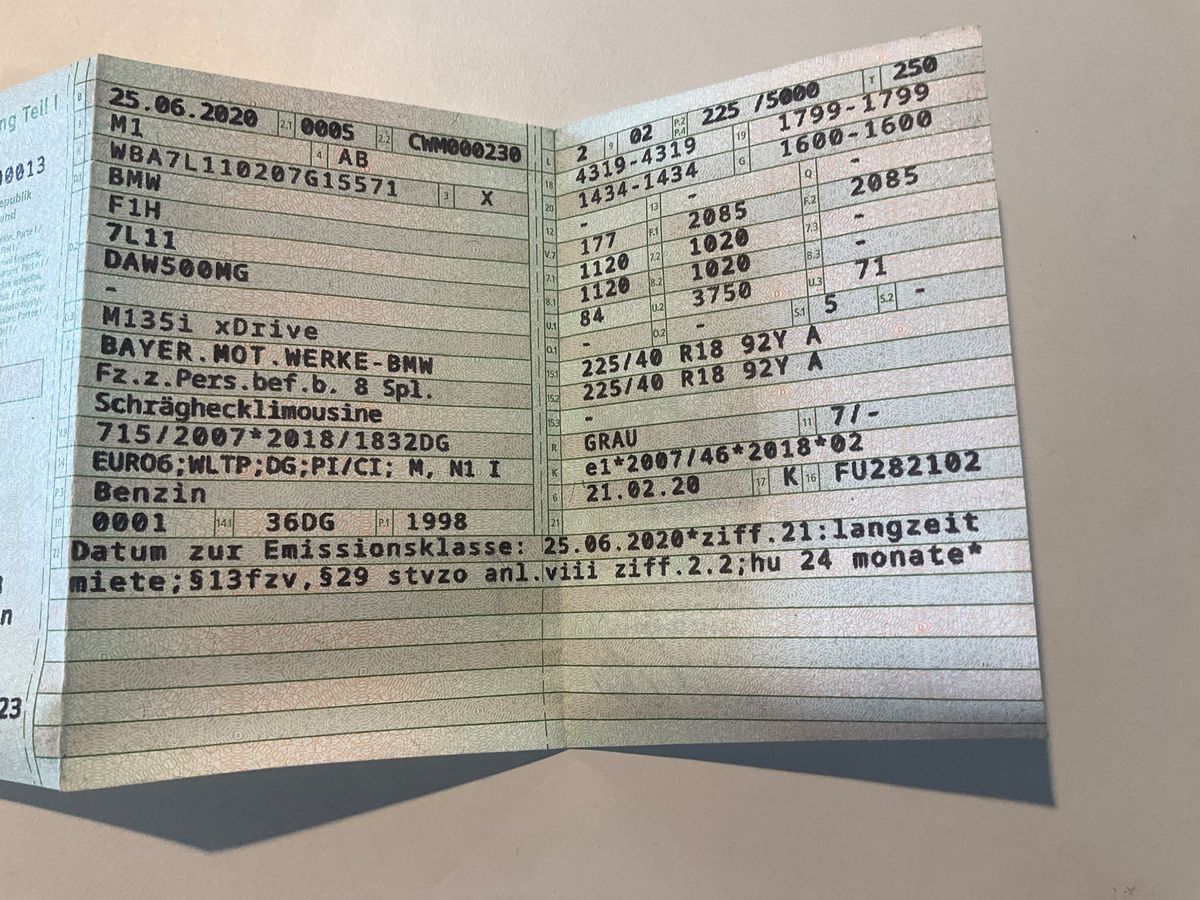 ng Teil I
00013
epublik
and
23
n
B 25.06.2020 2.1 0005 2.2 CWM000230
J M1 4 AB
E WBA7L110207G15571 3 X
D.1 BMW
D.2 F1H
7L11
DAW500MG
-
M135i xDrive
BAYER.MOT.WERKE-BMW
Fz.z.Pers.bef.b. 8 Spl.
Schräghecklimousine
715/2007*2018/1832DG
14 EURO6;WLTP;DG;PI/CI; M, N1 I
P.3 Benzin
10 0001 14.1 36DG P.1 1998
L 2 9 02 P.2 P.4 225 /5000 T 250
18 4319-4319 19 1799-1799
20 1434-1434 G 1600-1600
12 - 13 - Q -
V.7 177 F.1 2085 F.2 2085
7.1 1120 7.2 1020 7.3 -
8.1 1120 8.2 1020 8.3 -
U.1 84 U.2 3750 U.3 71
O.1 - O.2 - S.1 5 S.2 -
15.1 225/40 R18 92Y A
15.2 225/40 R18 92Y A
15.3 -
R GRAU 11 7/-
K e1*2007/46*2018*02
6 21.02.20 17 K 16 FU282102
21
22 Datum zur Emissionsklasse: 25.06.2020*ziff.21:langzeit
miete;§13fzv,§29 stvzo anl.viii ziff.2.2;hu 24 monate*